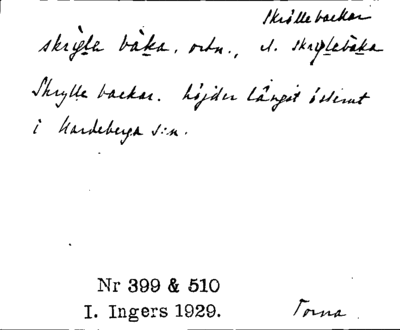 Skrölle backar
skrỳl̲a bàk̲a, ortn., el. skrỳl̲abàk̲a
Skrylle backar. höjder längst österut
i Hardeberga s:n.
Nr 399 & 510
I. Ingers 1929.
Torna